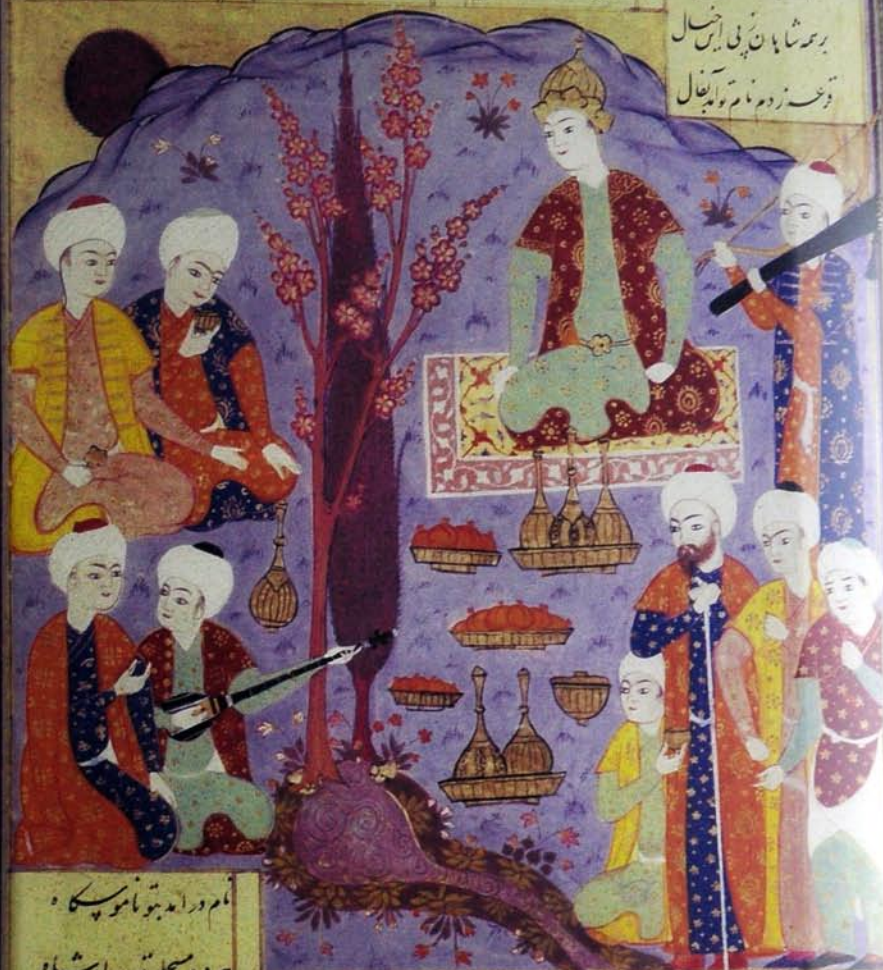 بر همه شاهان ز پی این خیال
قرعه زدم نام تو آمد بفال
نام درامد بتو ناموسکاه
مسجل